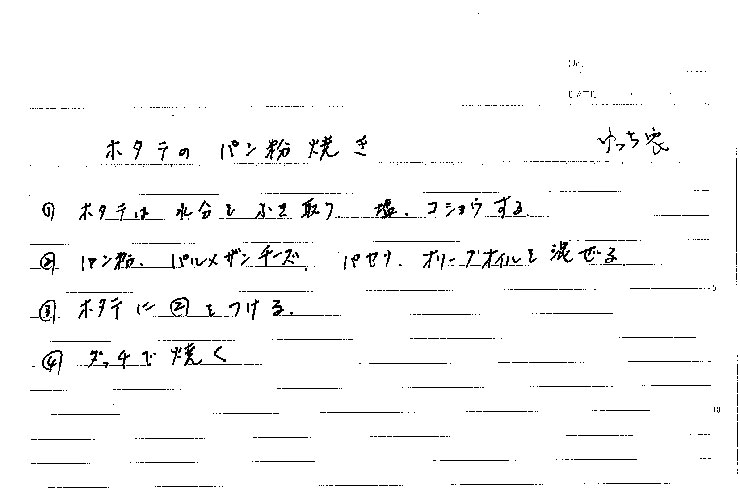 No.
DATE
ホタテの パン粉焼き ゆっち家
① ホタテは 水分をふき取り 塩、コショウする
② パン粉、パルメザンチーズ、パセリ、オリーブオイルを混ぜる
③ ホタテに②をつける。
④ ダッチで焼く
5
10